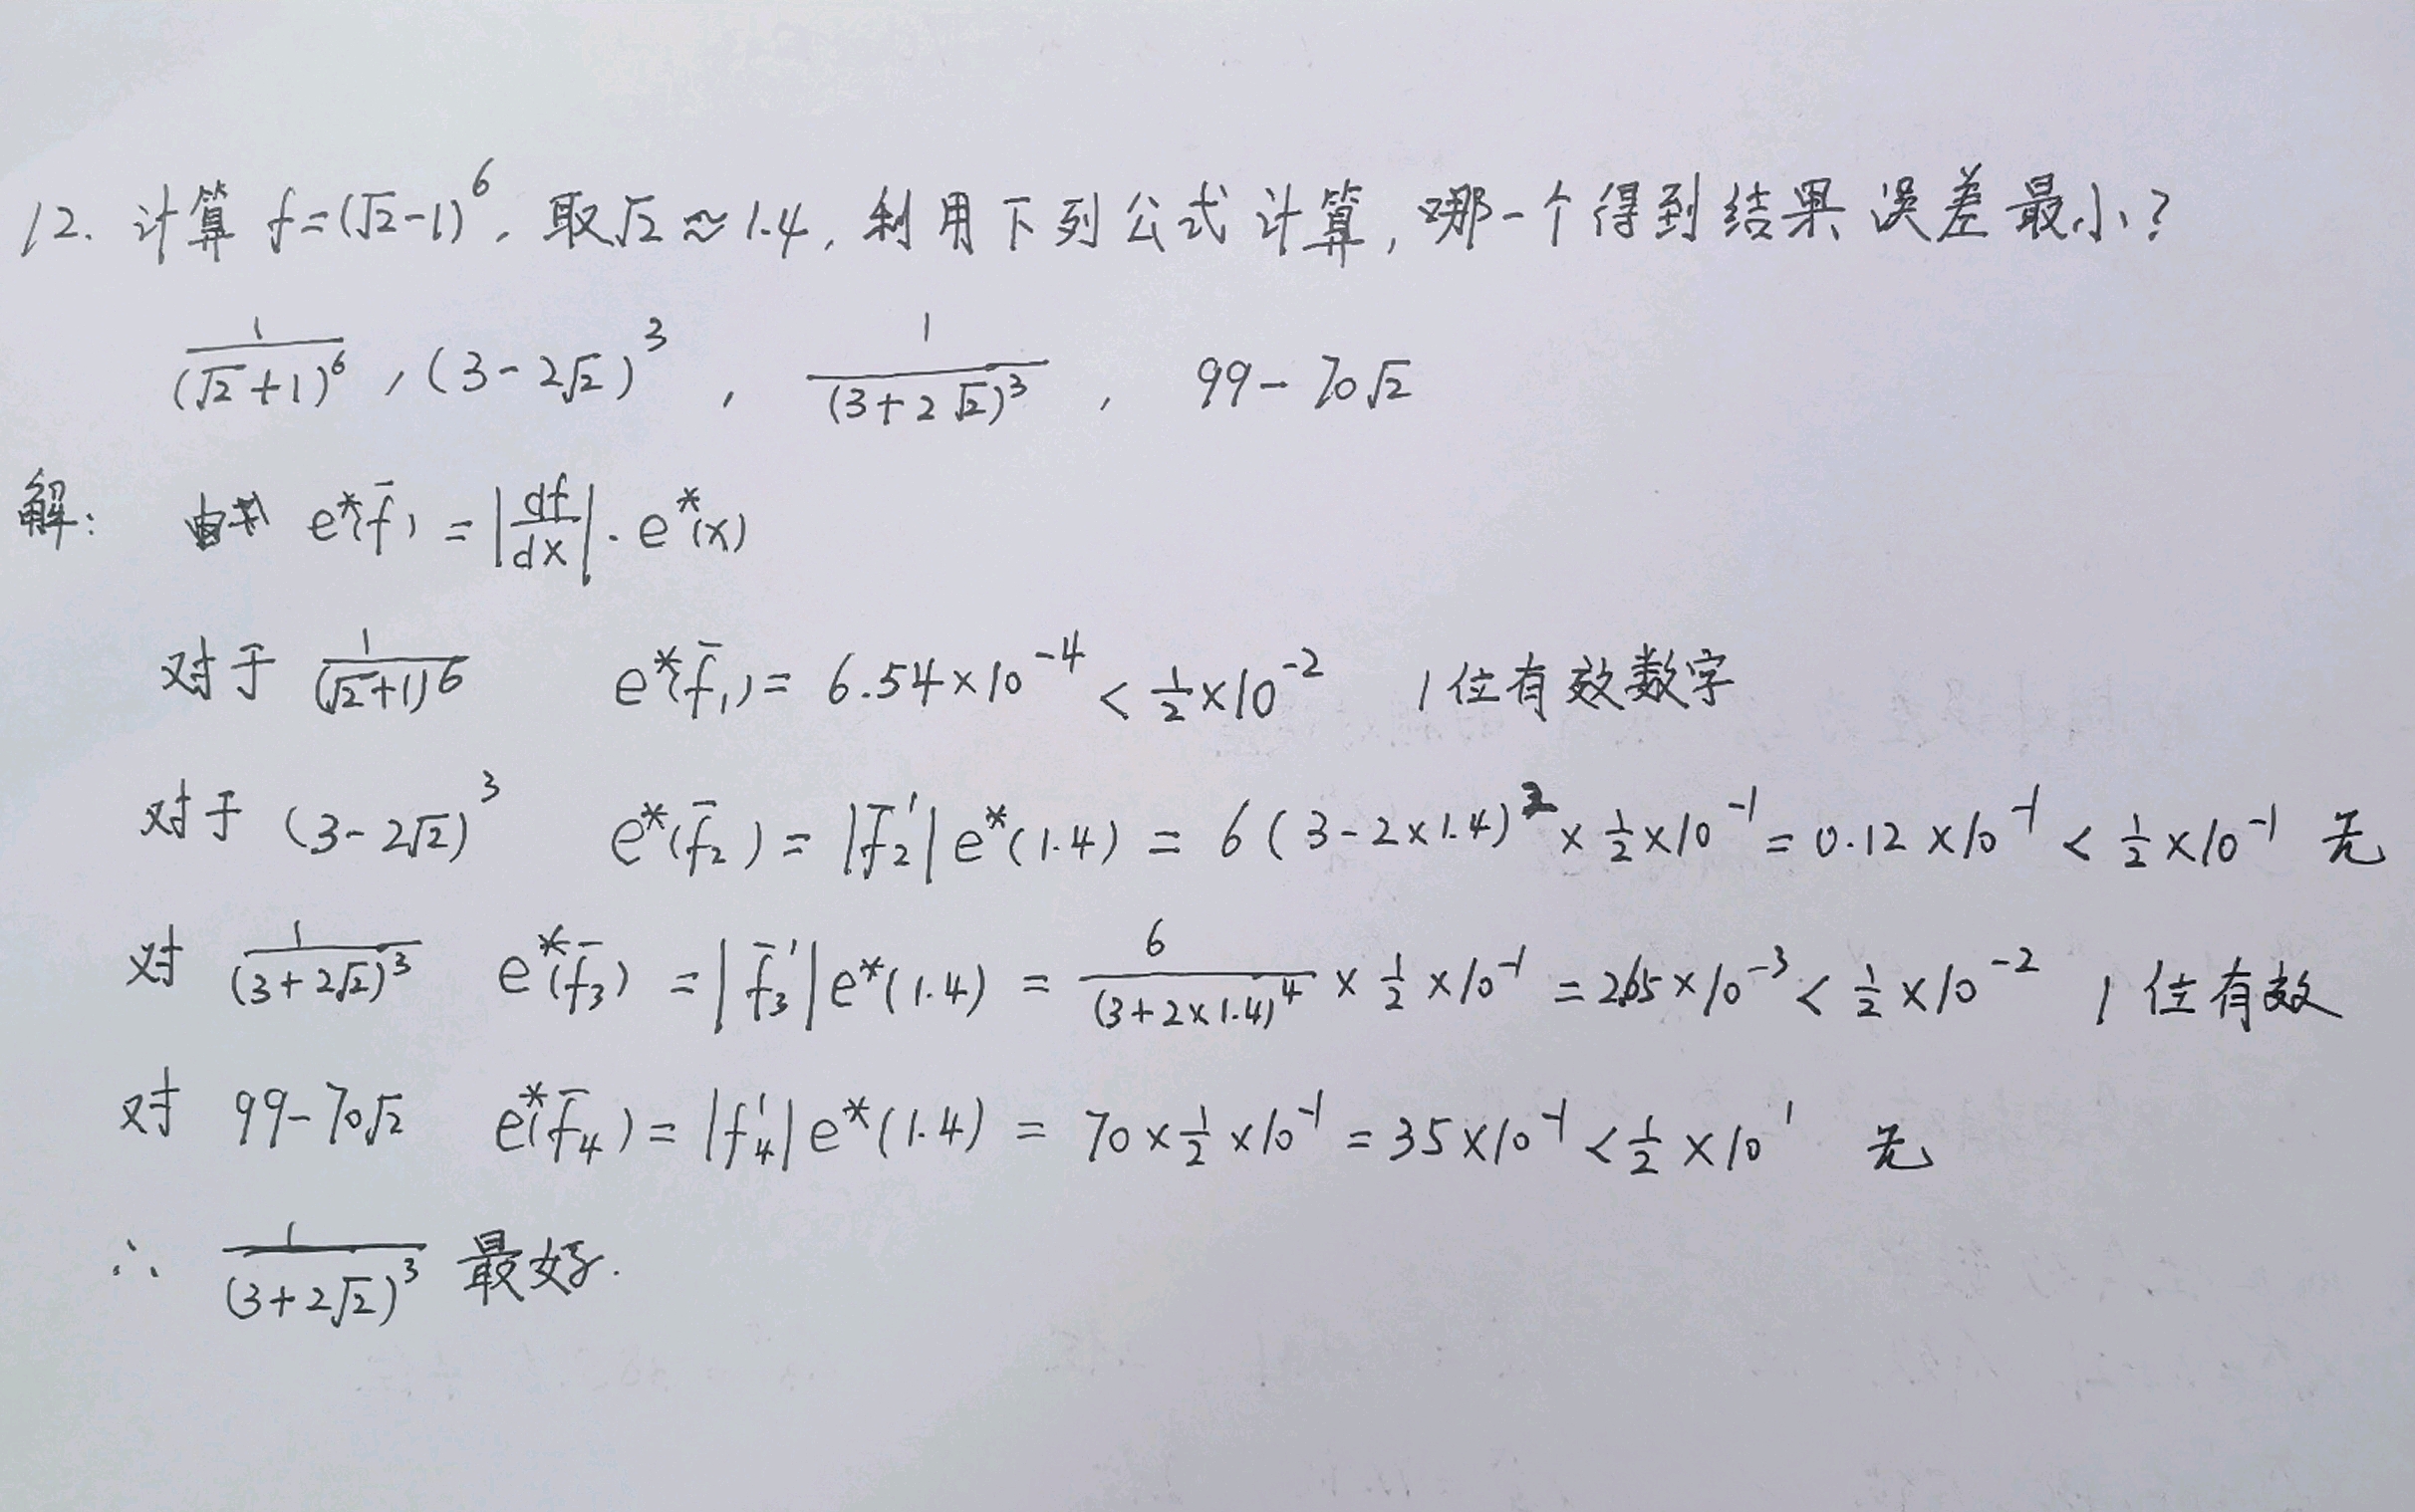 12. 计算 f=(√2-1)^6, 取√2≈1.4, 利用下列公式计算, 哪一个得到结果误差最小?
1/(√2+1)^6 , (3-2√2)^3 , 1/(3+2√2)^3 , 99-70√2
解: 由 e*(f̄) = |df/dx| · e*(x)
对于 1/(√2+1)^6 e*(f̄₁) = 6.54×10^-4 < 1/2×10^-2 1位有效数字
对于 (3-2√2)^3 e*(f̄₂) = |f̄₂'| e*(1.4) = 6(3-2×1.4)^2 × 1/2 × 10^-1 = 0.12×10^-1 < 1/2×10^-1 无
对 1/(3+2√2)^3 e*(f̄₃) = |f̄₃'| e*(1.4) = 6/(3+2×1.4)^4 × 1/2 × 10^-1 = 2.65×10^-3 < 1/2×10^-2 1位有效
对 99-70√2 e*(f̄₄) = |f₄'| e*(1.4) = 70×1/2×10^-1 = 35×10^-1 < 1/2×10^1 无
∴ 1/(3+2√2)^3 最好.